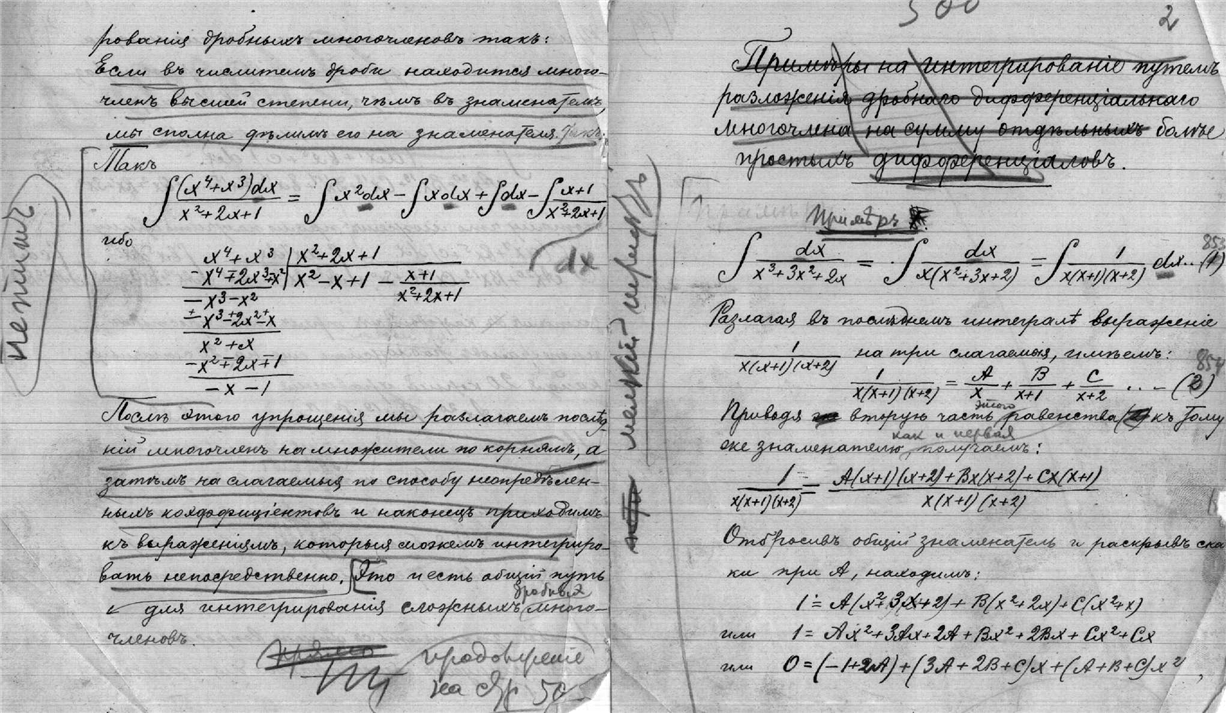 рованія дробныхъ многочленовъ такъ:
Если въ числителѣ дроби находится много-
членъ высшей степени, чѣмъ въ знаменателѣ,
мы сполна дѣлимъ его на знаменателя.
Такъ
∫ (x⁴+x³)dx / x²+2x+1 = ∫ x²dx − ∫ xdx + ∫ dx − ∫ x+1 / x²+2x+1 dx
ибо
x⁴+x³ | x²+2x+1
−x⁴∓2x³∓x² | x²−x+1 − x+1 / x²+2x+1
−x³−x²
+−x³+−2x²+−x
x²+x
−x²∓2x∓1
−x−1
Послѣ этого упрощенія мы разлагаемъ послѣд-
ній многочленъ на множители по корнямъ, а
затѣмъ на слагаемыя по способу неопредѣлен-
ныхъ коэффиціентовъ и наконецъ приходимъ
къ выраженіямъ, которыя можемъ интегриро-
вать непосредственно. Это и есть общій путь
для интегрированія сложныхъ дробныхъ много-
членовъ.
прямо
продолженіе
на стр 50
петитъ
мелкій шрифтъ
500
2
Примѣры на интегрированіе путемъ
разложенія дробнаго дифференціальнаго
многочлена на сумму отдѣльныхъ болѣе
простыхъ дифференціаловъ.
Примѣръ
∫ dx / x³+3x²+2x = ∫ dx / x(x²+3x+2) = ∫ 1 / x(x+1)(x+2) dx... (1)
853
Разлагая въ послѣднемъ интегралѣ выраженіе
1 / x(x+1)(x+2) на три слагаемыя, имѣемъ:
854
1 / x(x+1)(x+2) = A/x + B/x+1 + C/x+2 .... (2)
Приводя вторую часть этого равенства къ тому
же знаменателю, какъ и первая получаемъ:
1 / x(x+1)(x+2) = A(x+1)(x+2)+Bx(x+2)+Cx(x+1) / x(x+1)(x+2)
Отбросивъ общій знаменатель и раскрывъ скоб-
ки при A, находимъ:
1 = A(x²+3x+2)+B(x²+2x)+C(x²+x)
или 1 = Ax²+3Ax+2A+Bx²+2Bx+Cx²+Cx
или 0 = (−1+2A)+(3A+2B+C)x+(A+B+C)x²,